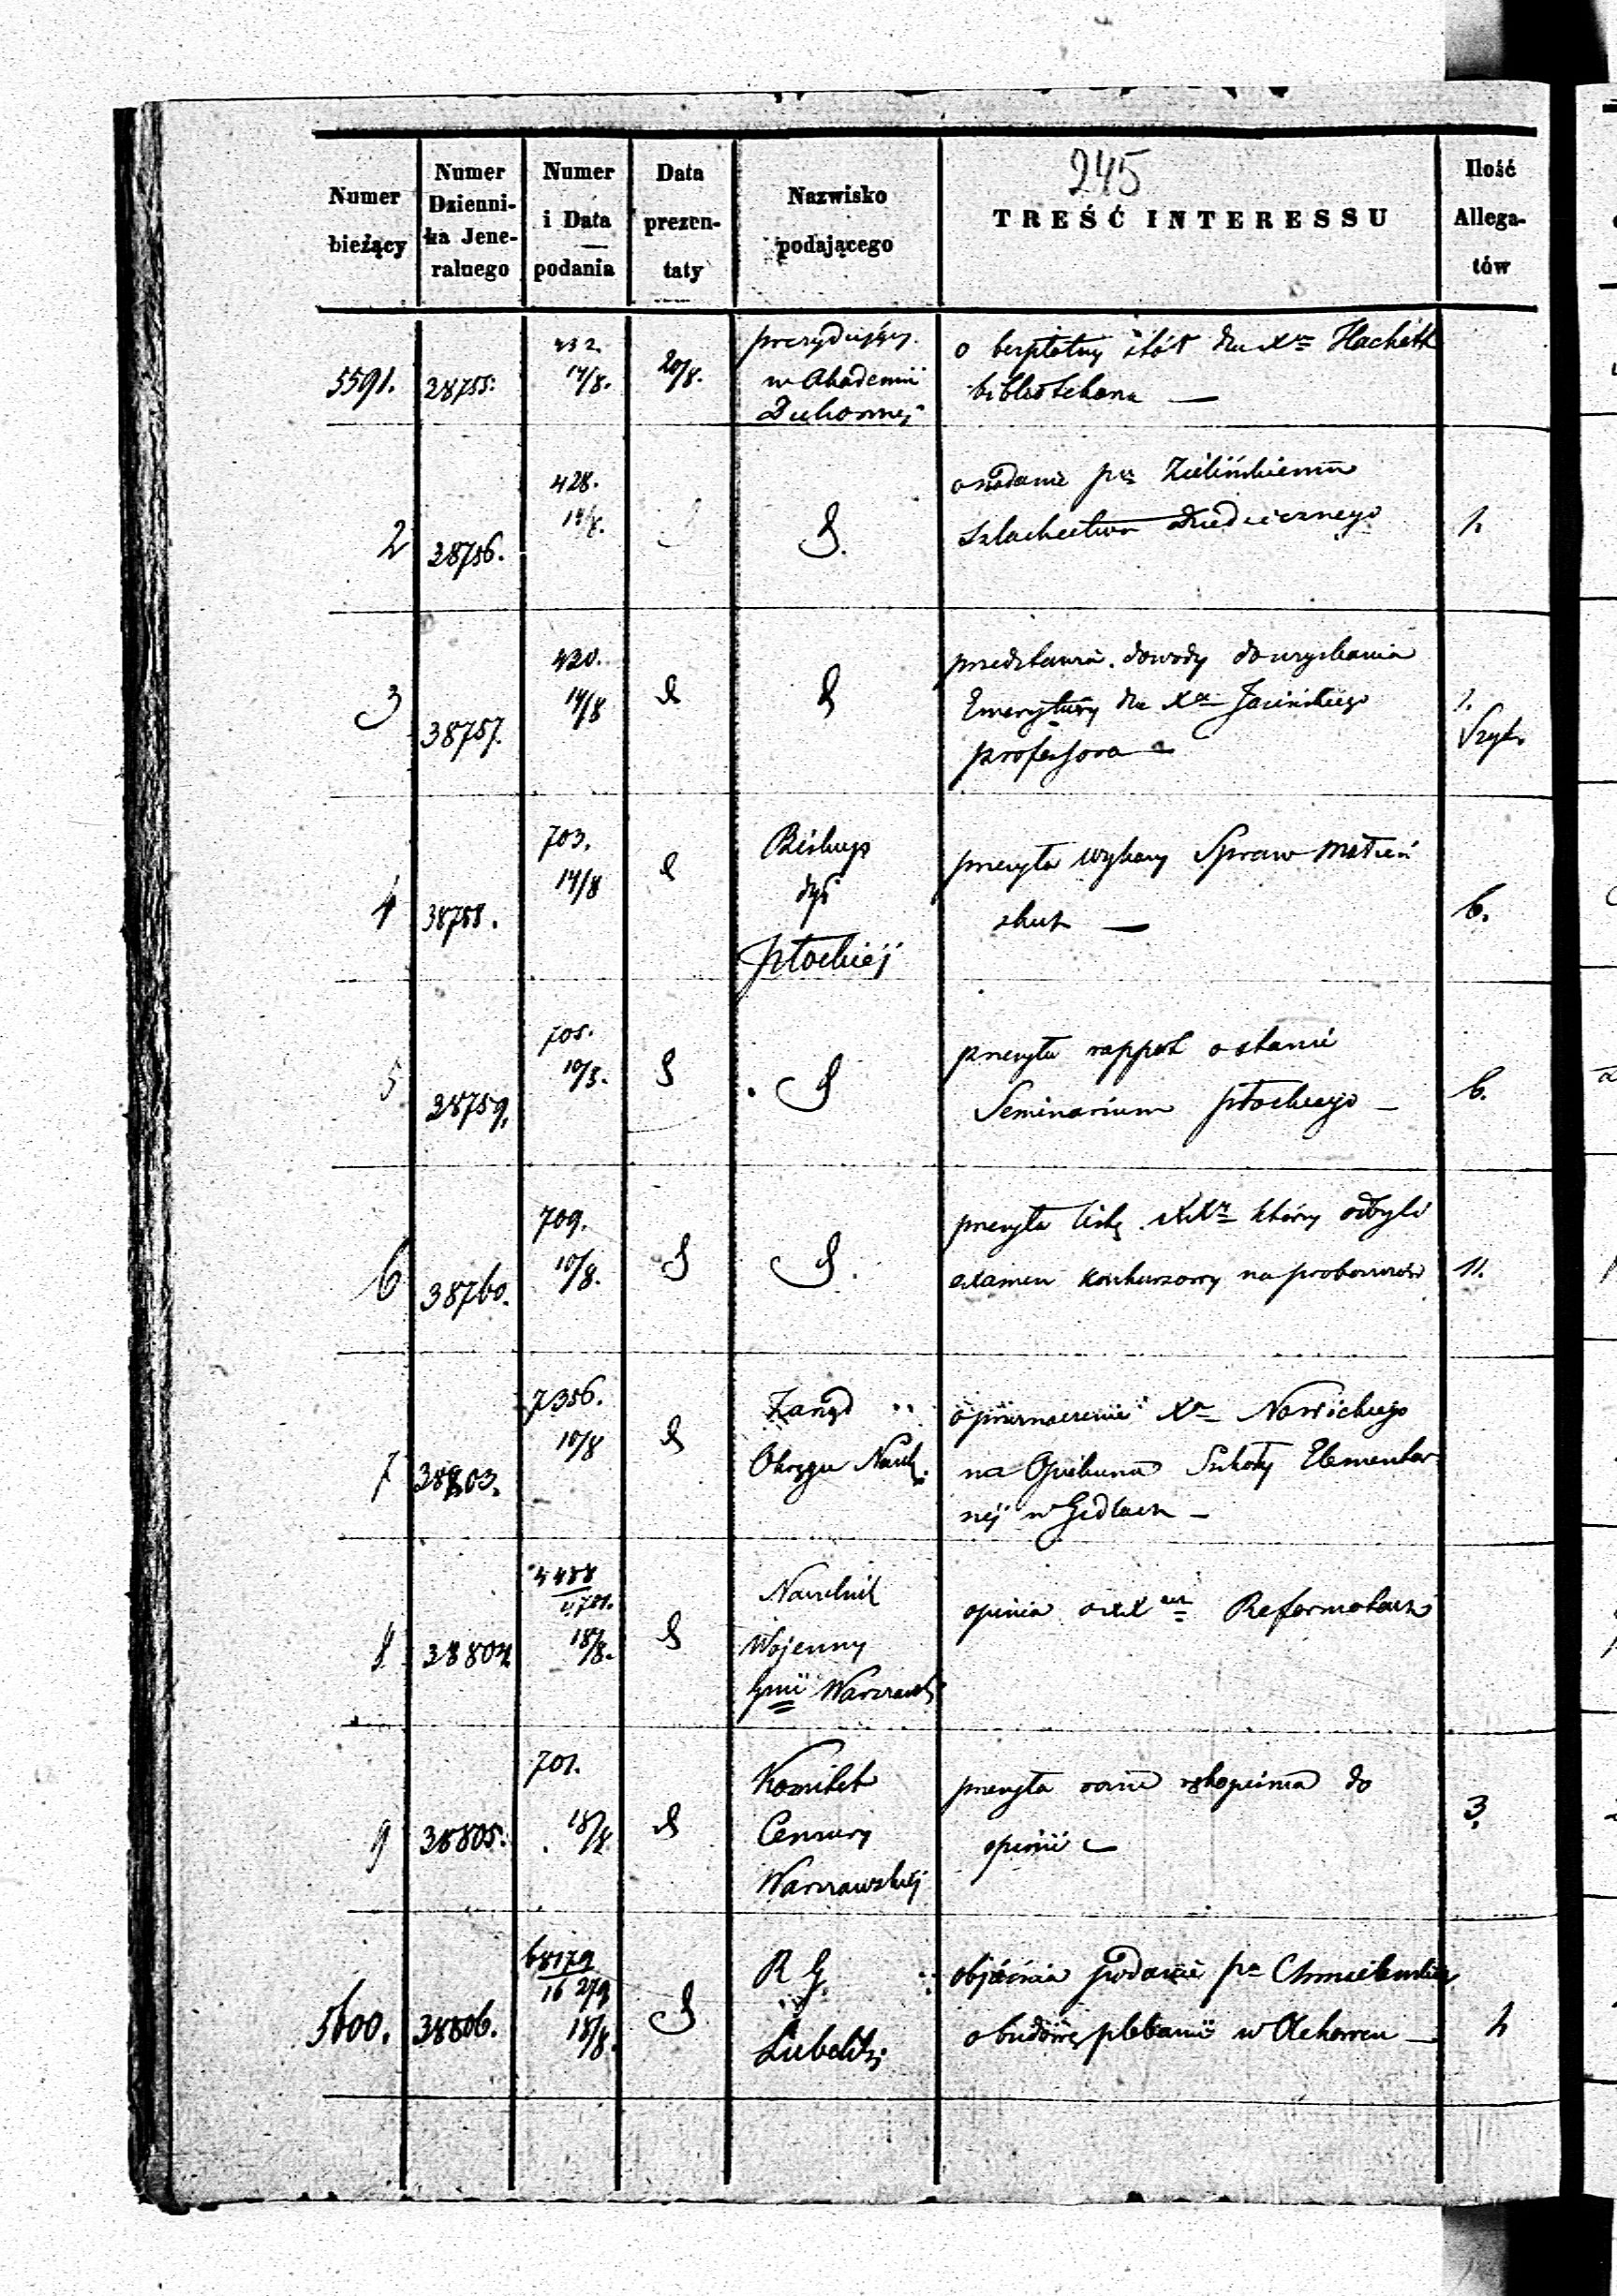 245
Numer bieżący
Numer Dziennika Jeneralnego
Numer i Data podania
Data prezentaty
Nazwisko podającego
TREŚĆ INTERESSU
Ilość Allegatów
5591. 28755. 432 14/8. 20/8. prezydujący w Akademii Duchownej
o bezpłatny stół dla Xa
bibliotekarza —
2 38756. 428. 14/8. d.
o nadanie pu Zielińskiemu
szlachectwa dziedzicznego
3 38757. 430. 14/8 d d
przedstawia dowody do uzyskania
Emerytury dla Xa Jasińskiego
professora
1. Szyt.
4 38758. 703. 14/8 d Biskup dyi płockiéj
przesyła wykazy Spraw małżeń
skich —
6.
5 38759. 705. 10/8. d d
przesyła rapport o stanie
Seminarium płockiego —
6.
6 38760. 709. 10/8. d d.
przesyła listę XXy którzy odbyli
examen konkursowy na probostwo
11.
7 38803. 7356. 10/8 d Zarząd Okręgu Nauk.
o przeznaczenie Xa Nowickiego
na Opiekuna Szkoły Elementar
néj w Gidlach —
8 38804 4488 18/8. d Naczelnik Wojenny Gnii Warszaws
opinia o XXach Reformatach
9 38805. 701. 18/8 d Komitet Cenzury Warszawskiéj
przesyła rękopisma do
opinii —
3.
5600. 38806. 68179 16 279 18/8. d R G Lubelski
objaśnia podanie pa
o budowę plebanii w —